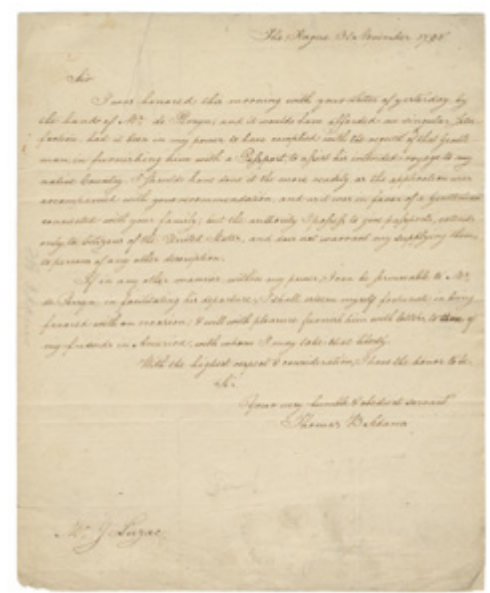 The Hague 3d November 179
Sir
I was honored this morning with your letter of yesterday, by
the hands of Mr. de ; and it would have afforded me singular satis-
faction had it been in my power to have complied with the request of that Gentle-
man in furnishing him with a Passport, to assist his intended voyage to my
native Country. I should have done it the more readily as the application was
accompanied with your recommendation, and as it was in favor of a Gentleman
connected with your family; but the authority I possess to give passports, extends
only to Citizens of the United States, and does not warrant my supplying them
to persons of any other description.
If in any other manner, within my power, I can be serviceable to Mr.
de , in facilitating his departure, I shall esteem myself fortunate in being
favored with an occasion; & will with pleasure furnish him with letters to those of
my friends in America, with whom I may take that liberty.
With the highest respect & consideration, I have the honor to be
Sir
Your very humble & obedient servant
Thomas B. Adams
Mr. J Luzac